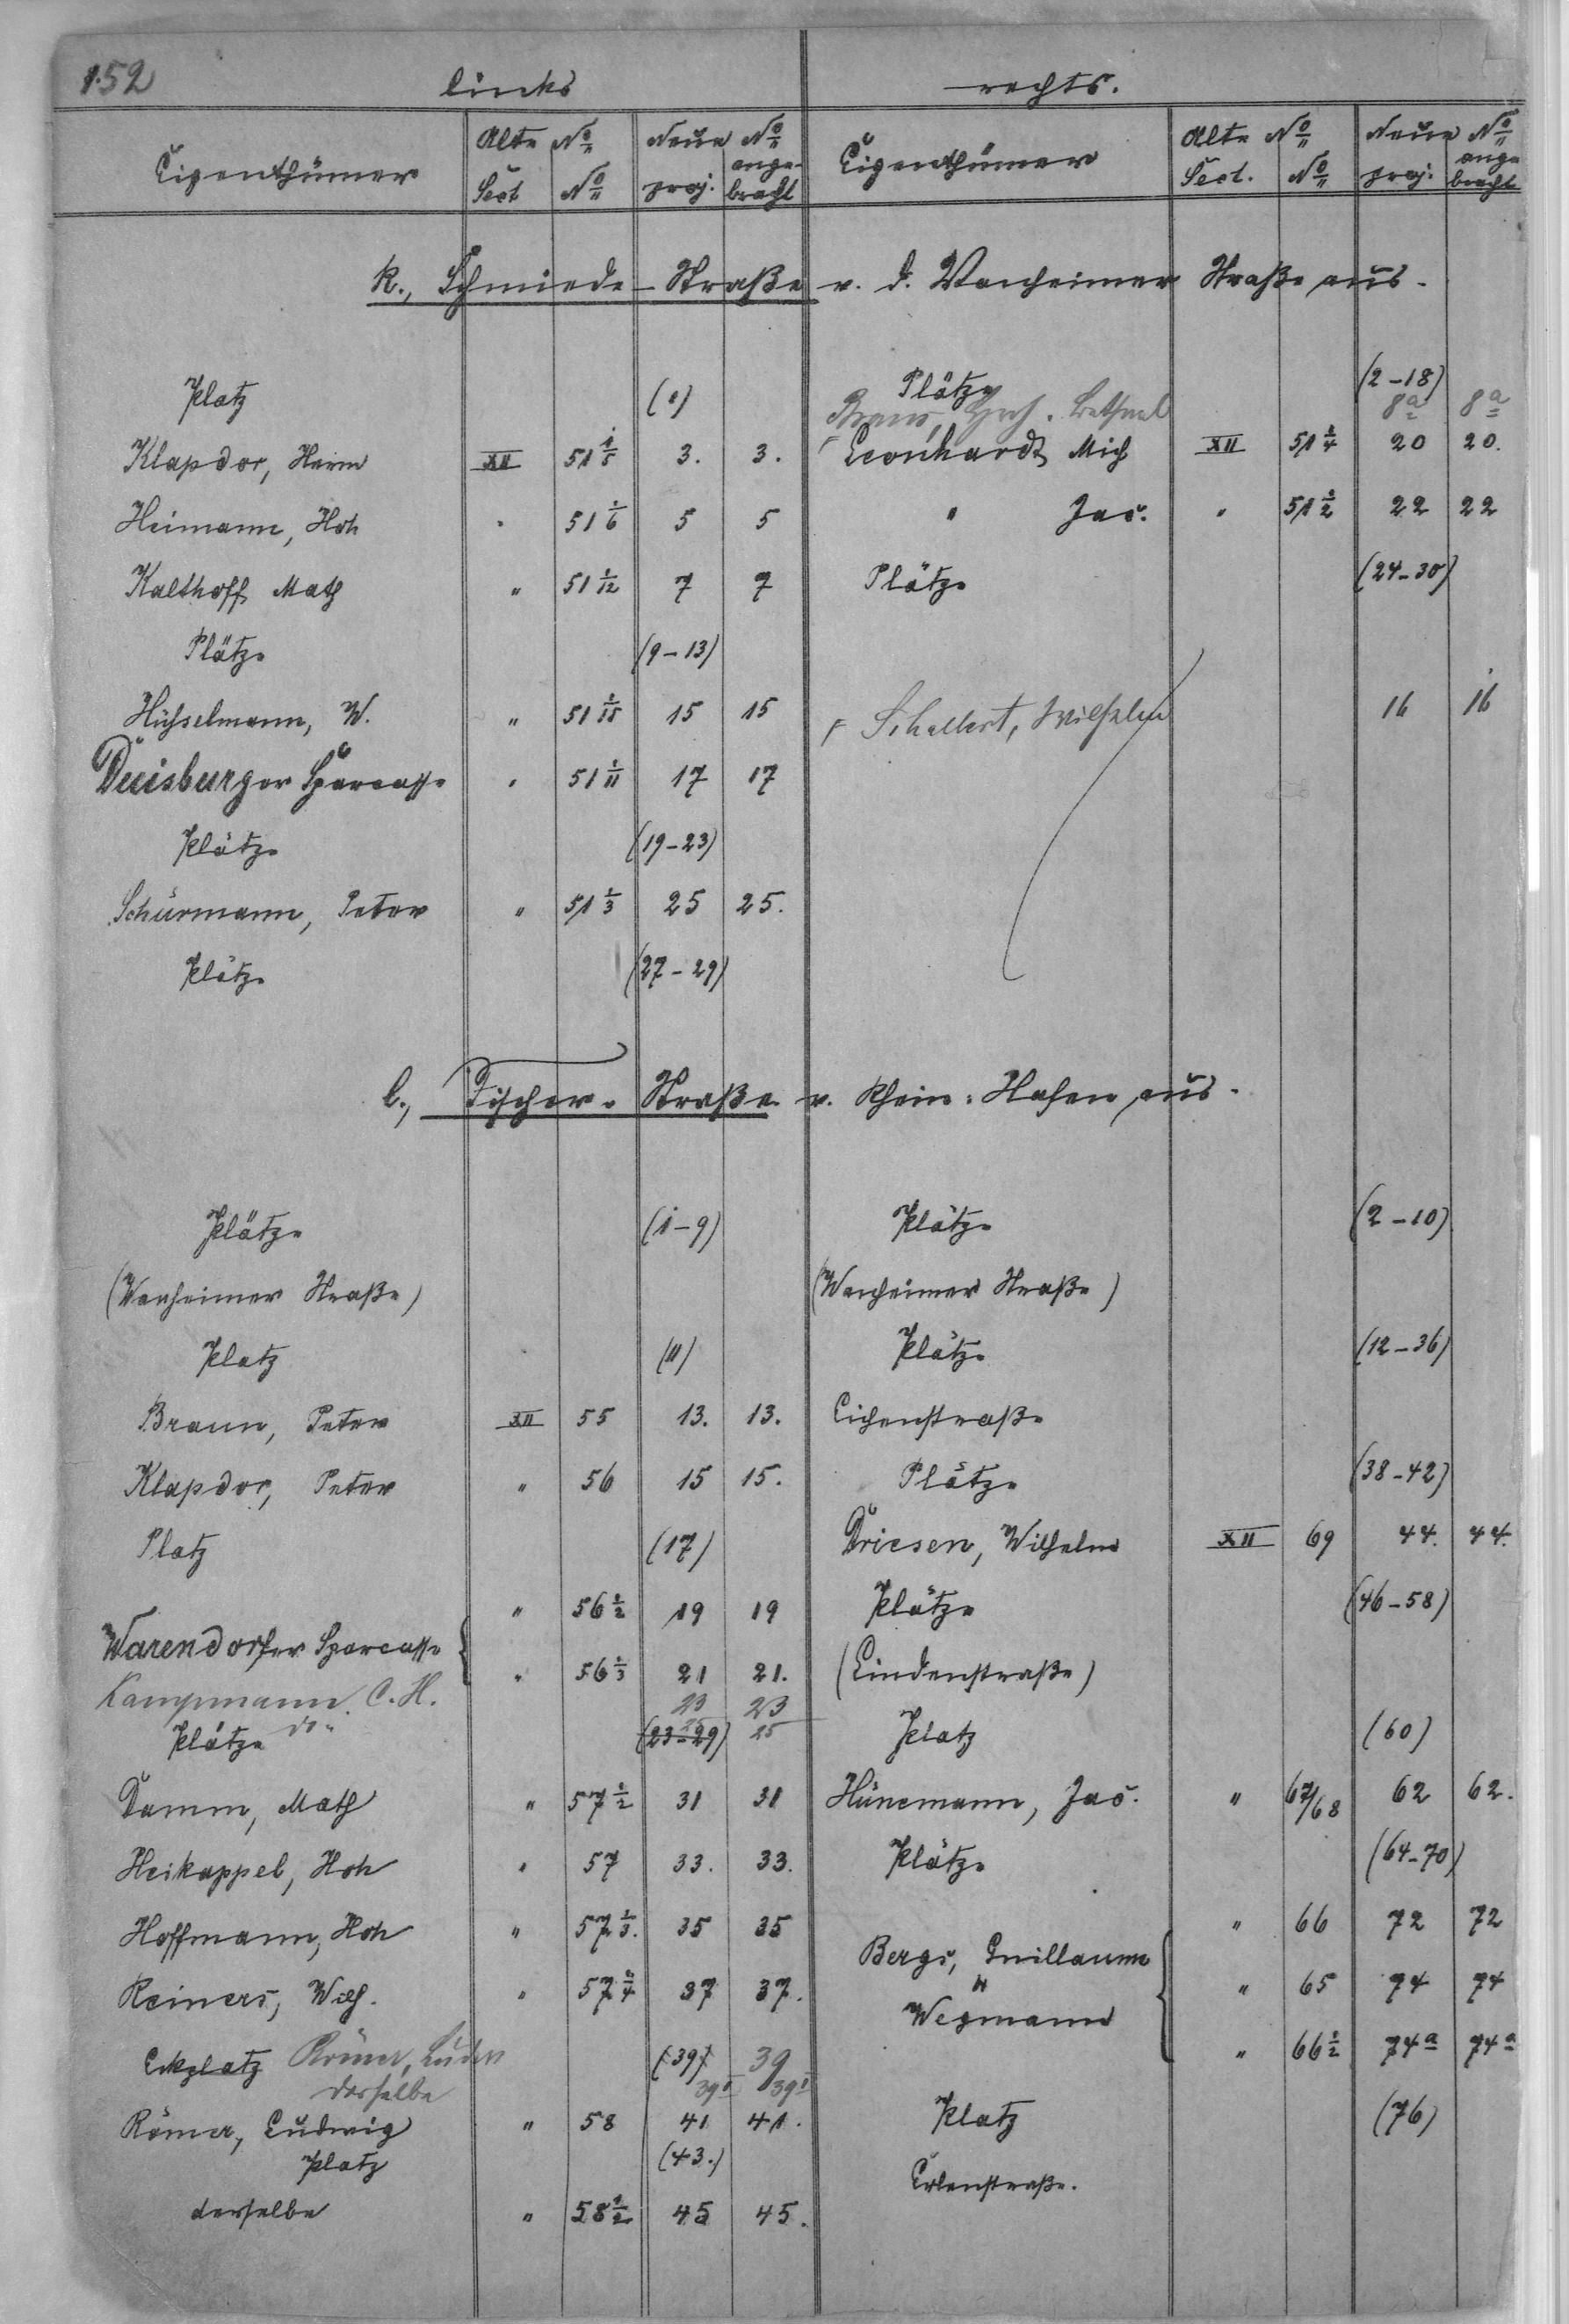 152
links
rechts.
Eigenthümer Alte No Neue No Eigenthümer Alte No Neue No
Sect No proj. angebracht Sect. No proj. angebracht
k., Schmiede-Straße v. d. Wanheimer Straße aus.
Platz (1) Plätze (2-18)
8a 8a
Klapdor, Herm XII 51 1/5 3. 3. Leonhardt Mich XII 51 1/4 20 20.
Heimann, Hch " 51 1/6 5 5 " Jac. " 51 1/2 22 22
Kalthoff Math " 51 1/12 7 7 Plätze (24-30)
Plätze (9-13)
Hüsselmann, W. " 51 1/15 15 15 Schallert, Wilhelm 16 16
Duisburger Sparcasse " 51 1/11 17 17
Plätze (19-23)
Schürmann, Peter " 51 1/3 25 25.
Plätze (27-29)
l., Fischer-Straße v. Rhein-Hafen aus.
Plätze (1-9) Plätze (2-10)
(Wanheimer Straße) (Wanheimer Straße)
Platz (11) Plätze (12-36)
Braun, Peter XII 55 13. 13. Eichenstraße
Klapdor, Peter " 56 15 15. Plätze (38-42)
Platz (17) Driesen, Wilhelm XII 69 44. 44.
" 56 1/2 19 19 Plätze (46-58)
Warendorfer Sparcasse " 56 1/3 21 21. (Lindenstraße)
Kampmann C. H. 23 23
Plätze do. (23-29) 25 25 Platz (60)
Damm, Math " 57 1/2 31 31 Hünemann, Jac. " 67/68 62 62.
Heikappel, Hch " 57 33. 33. Plätze (64-70)
Hoffmann, Hch " 57 1/3. 35 35 Bergs, Guillaume " 66 72 72
Reiners, Wilh. " 57 1/4 37 37. " Wegmann " 65 74 74
Eckplatz Römer, Ludw (39) 39 " 66 1/2 74a 74a
derselbe 39I 39I
Römer, Ludwig " 58 41 41. Platz (76)
Platz (43.)
Erlenstraße.
derselbe " 58 1/2 45 45.